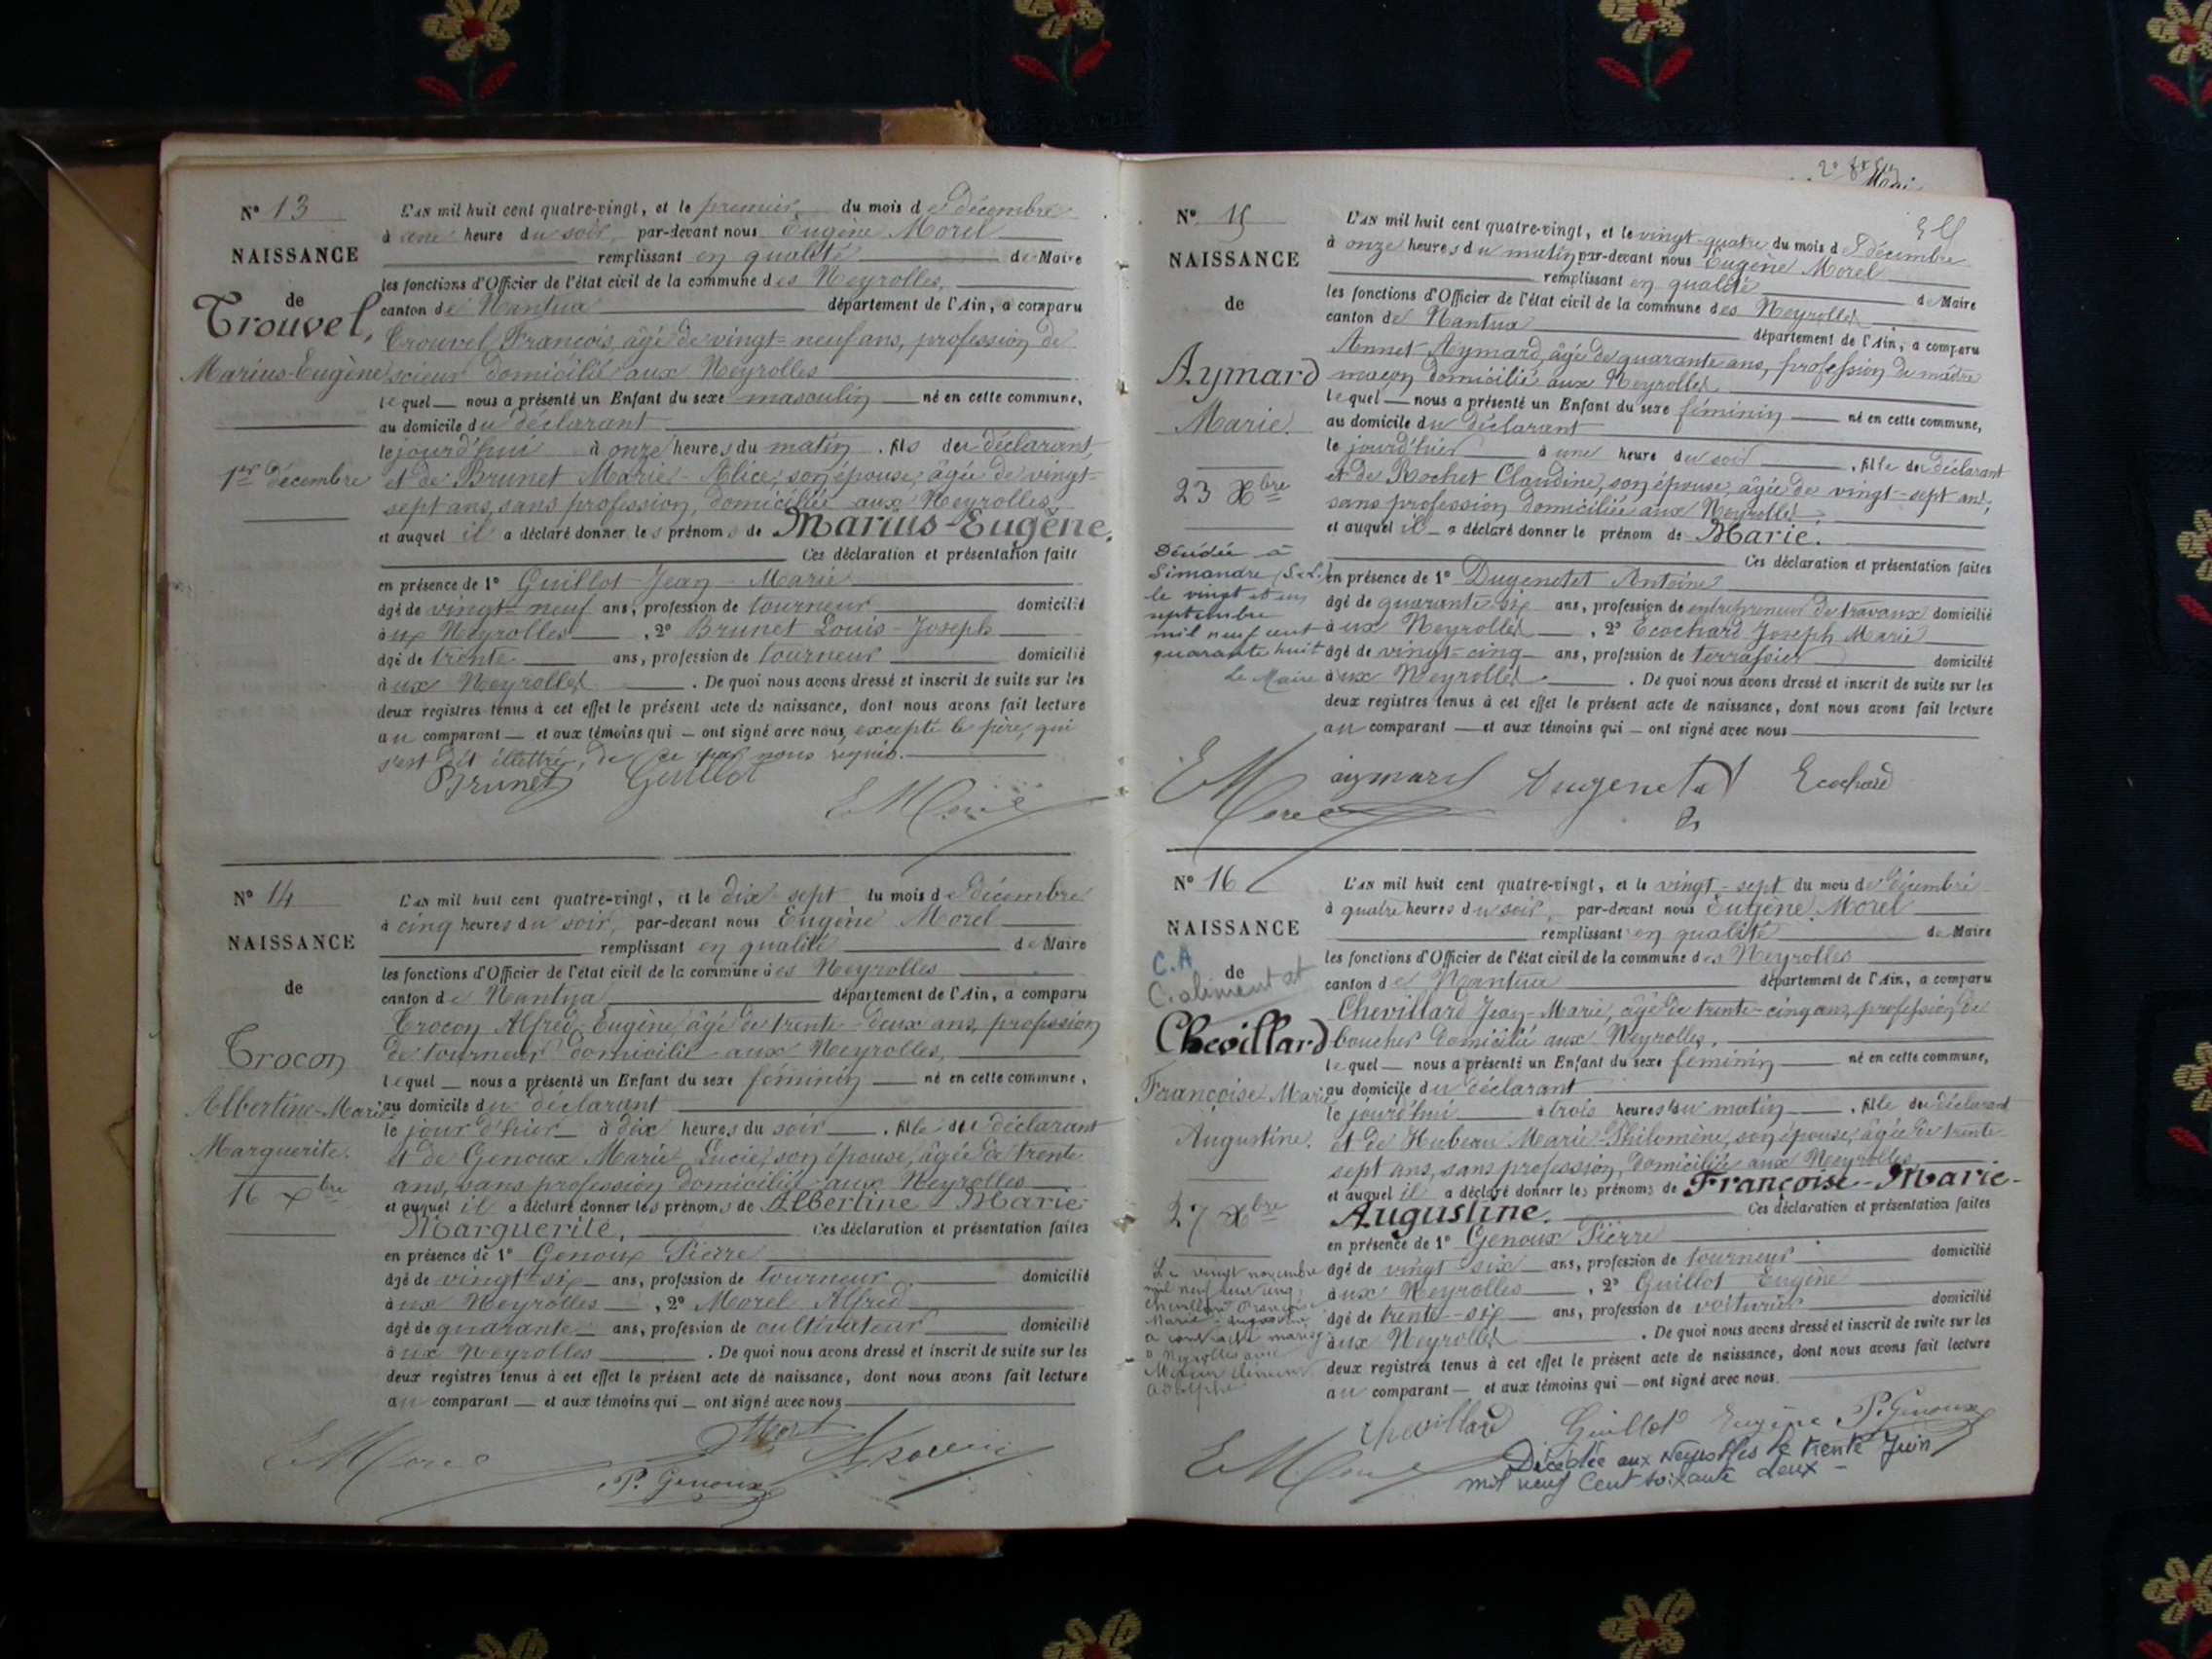 N° 13
NAISSANCE
de
Trouvel,
Marius-Eugène
1er décembre
L'AN mil huit cent quatre-vingt, et le premier du mois de décembre
à une heure du soir, par-devant nous Eugène Morel
remplissant en qualité de Maire
les fonctions d'Officier de l'état civil de la commune des Neyrolles,
canton de Nantua département de l'Ain, a comparu
Trouvel, François, âgé de vingt-neuf ans, profession de
scieur domicilié aux Neyrolles
lequel nous a présenté un Enfant du sexe masculin né en cette commune,
au domicile du déclarant
le jourd'hui à onze heures du matin, fils du déclarant,
et de Brunet Marie-Alice, son épouse, âgée de vingt-
sept ans, sans profession, domiciliée aux Neyrolles
et auquel il a déclaré donner les prénoms de Marius-Eugène.
Ces déclaration et présentation faite
en présence de 1° Guillot Jean-Marie
âgé de vingt-neuf ans, profession de tourneur domicilié
aux Neyrolles, 2° Brunet Louis-Joseph
âgé de trente ans, profession de tourneur domicilié
aux Neyrolles. De quoi nous avons dressé et inscrit de suite sur les
deux registres tenus à cet effet le présent acte de naissance, dont nous avons fait lecture
au comparant et aux témoins qui ont signé avec nous, excepté le père, qui
s'est dit illettré, de ce par nous requis.
Brunet Guillot
E Morel
N° 14
NAISSANCE
de
Trocon
Albertine-Marie
Marguerite.
16 Xbre
L'AN mil huit cent quatre-vingt, et le dix-sept du mois de décembre
à cinq heures du soir, par-devant nous Eugène Morel
remplissant en qualité de Maire
les fonctions d'Officier de l'état civil de la commune des Neyrolles
canton de Nantua département de l'Ain, a comparu
Trocon Alfred, Eugène, âgé de trente-deux ans, profession
de tourneur domicilié aux Neyrolles,
lequel nous a présenté un Enfant du sexe féminin né en cette commune,
au domicile du déclarant
le jour d'hier à dix heures du soir, fille du déclarant
et de Genoux Marie Lucie, son épouse, âgée de trente
ans, sans profession domiciliée aux Neyrolles
et auquel il a déclaré donner les prénoms de Albertine Marie
Marguerite. Ces déclaration et présentation faites
en présence de 1° Genoux Pierre
âgé de vingt-six ans, profession de tourneur domicilié
aux Neyrolles, 2° Morel Alfred
âgé de quarante ans, profession de cultivateur domicilié
aux Neyrolles. De quoi nous avons dressé et inscrit de suite sur les
deux registres tenus à cet effet le présent acte de naissance, dont nous avons fait lecture
au comparant et aux témoins qui ont signé avec nous
E Morel
P. Genoux
N° 15
NAISSANCE
de
Aymard
Marie.
23 Xbre
Décédée à
Simandre (S&L.)
le vingt et un
septembre
mil neuf cent
quarante huit
Le Maire
L'AN mil huit cent quatre-vingt, et le vingt-quatre du mois de décembre
à onze heures du matin par-devant nous Eugène Morel
remplissant en qualité de Maire
les fonctions d'Officier de l'état civil de la commune des Neyrolles
canton de Nantua département de l'Ain, a comparu
Annet Aymard, âgé de quarante ans, profession de maître
maçon domicilié aux Neyrolles
lequel nous a présenté un Enfant du sexe féminin né en cette commune,
au domicile du déclarant
le jourd'hier à une heure du soir, fille du déclarant
et de Rochet Claudine, son épouse, âgée de vingt-sept ans,
sans profession domiciliée aux Neyrolles
et auquel il a déclaré donner le prénom de Marie.
Ces déclaration et présentation faites
en présence de 1° Dugenetet Antoine
âgé de quarante-six ans, profession de entrepreneur de travaux domicilié
aux Neyrolles, 2° Ecochard Joseph Marie
âgé de vingt-cinq ans, profession de terrassier domicilié
aux Neyrolles. De quoi nous avons dressé et inscrit de suite sur les
deux registres tenus à cet effet le présent acte de naissance, dont nous avons fait lecture
au comparant et aux témoins qui ont signé avec nous
E Morel aymard Dugenetet Ecochard
N° 16
NAISSANCE
C.A
de
C. aliment at
Chevillard
Françoise Marie
Augustine.
27 Xbre
Le vingt novembre
mil neuf cent cinq
Chevillard Françoise
Marie-Augustine
a contracté mariage
à Neyrolles avec
Clément
Adolphe
L'AN mil huit cent quatre-vingt, et le vingt-sept du mois de décembre
à quatre heures du soir, par-devant nous Eugène Morel
remplissant en qualité de Maire
les fonctions d'Officier de l'état civil de la commune des Neyrolles
canton de Nantua département de l'Ain, a comparu
Chevillard Jean-Marie, âgé de trente-cinq ans, profession de
boucher domicilié aux Neyrolles,
lequel nous a présenté un Enfant du sexe féminin né en cette commune,
au domicile du déclarant
le jourd'hui à trois heures du matin, fille du déclarant
et de Hubeau Marie-Philomène, son épouse, âgée de trente-
sept ans, sans profession, domiciliée aux Neyrolles
et auquel il a déclaré donner les prénoms de Françoise-Marie-
Augustine. Ces déclaration et présentation faites
en présence de 1° Genoux Pierre
âgé de vingt-six ans, profession de tourneur domicilié
aux Neyrolles, 2° Guillot Eugène
âgé de trente-six ans, profession de voiturier domicilié
aux Neyrolles. De quoi nous avons dressé et inscrit de suite sur les
deux registres tenus à cet effet le présent acte de naissance, dont nous avons fait lecture
au comparant et aux témoins qui ont signé avec nous.
Chevillard Guillot Eugène P. Genoux
E Morel
Décédée aux Neyrolles le trente Juin
mil neuf cent soixante deux